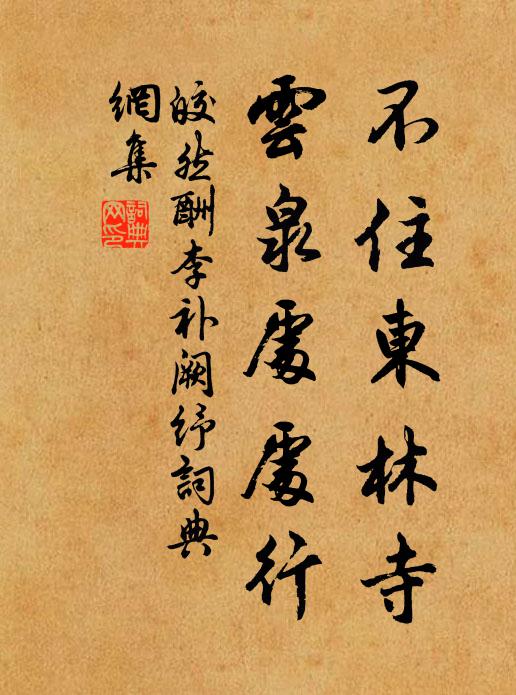 不住東林寺
雲泉處處行
皎然酬李補闕紓詞典
網集
詞典網印